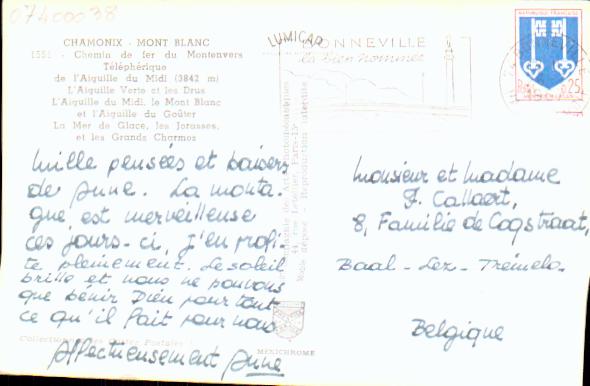 07400038
CHAMONIX - MONT BLANC
1551 - Chemin de fer du Montenvers
Téléphérique
de l'Aiguille du Midi (3842 m)
L'Aiguille Verte et les Drus
L'Aiguille du Midi, le Mont Blanc
et l'Aiguille du Goûter
La Mer de Glace, les Jorasses,
et les Grands Charmoz
Mille pensées et baisers
de Anne. La monta-
gne est merveilleuse
ces jours-ci, j'en profi-
te pleinement. Le soleil
brille et nous ne pouvons
que bénir Dieu pour tout
ce qu'il fait pour nous
Affectueusement Anne
MEXICHROME
BONNEVILLE
la bien nommée
REPUBLIQUE FRANCAISE
0,25
Monsieur et Madame
F. Callaert,
8, Familie de Cogstraat,
Baal - Lez - Trémelo.
Belgique